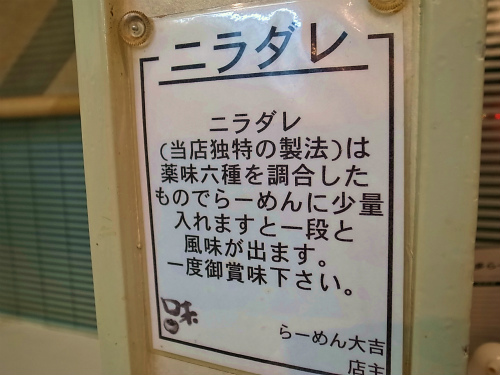 ニラダレ
ニラダレ
(当店独特の製法)は
薬味六種を調合した
ものでらーめんに少量
入れますと一段と
風味が出ます。
一度御賞味下さい。
らーめん大吉
店主